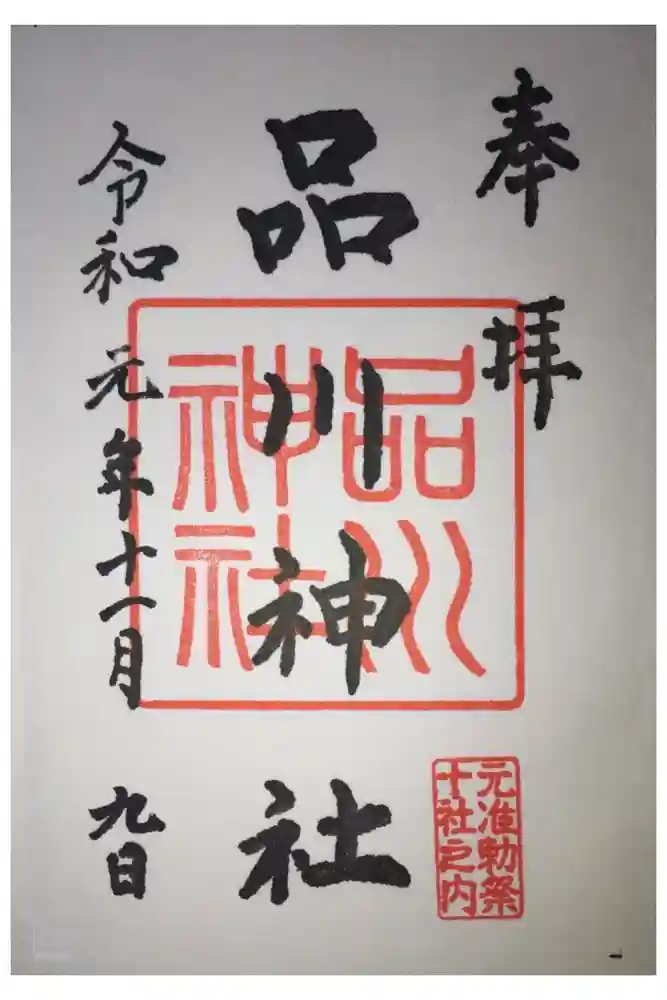 奉拝
品川神社
品川
神社
令和元年十一月九日
元准勅祭
十社之内